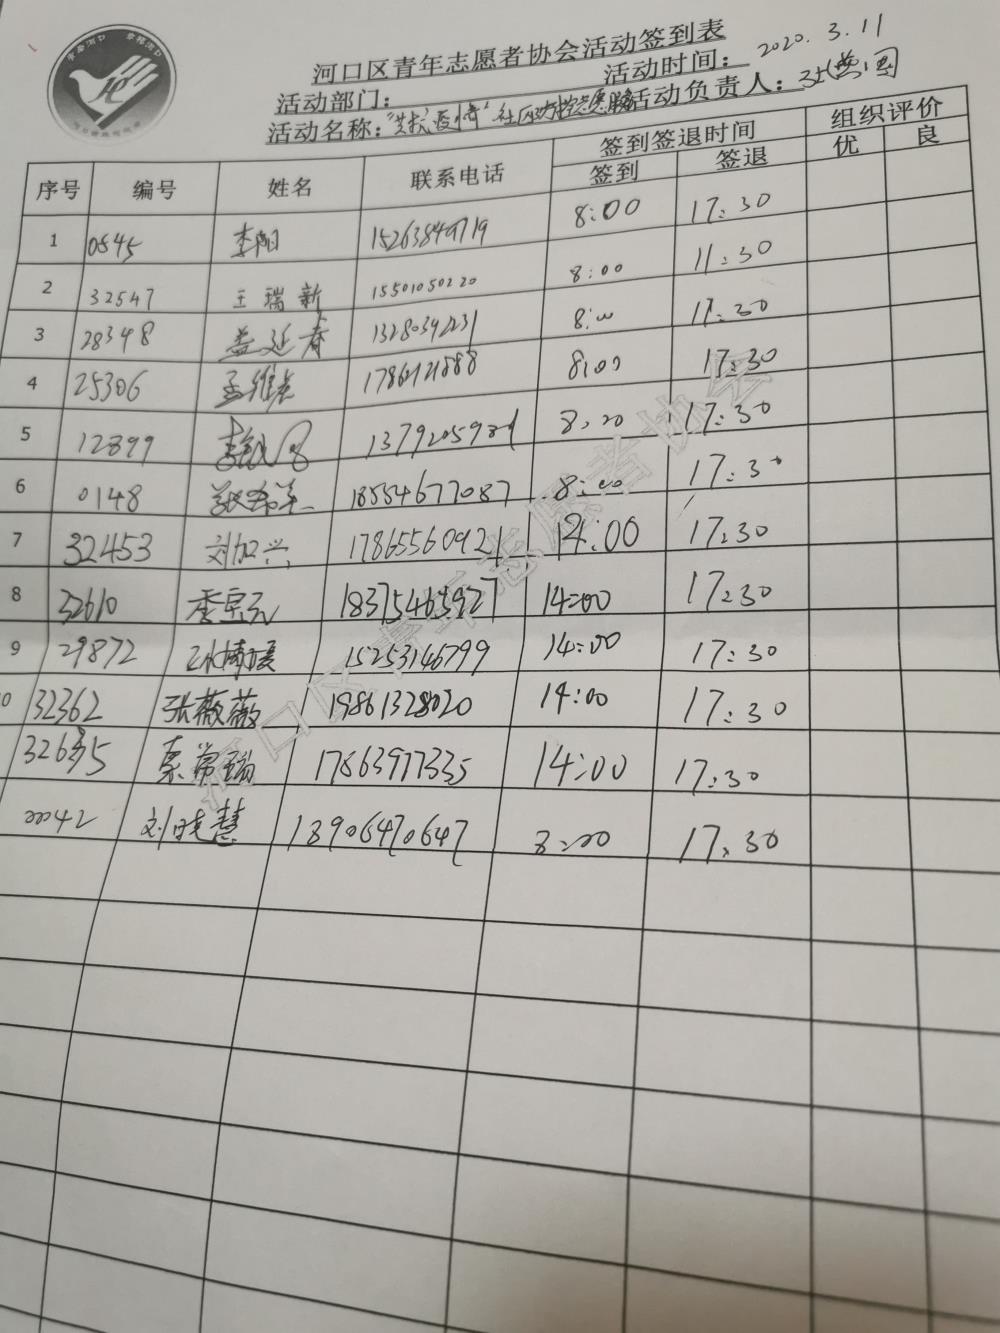 河口区青年志愿者协会活动签到表
活动部门: 活动时间: 2020.3.11
活动名称: 社区防控志愿服务 活动负责人:
序号 编号 姓名 联系电话 签到签退时间 组织评价
签到 签退 优 良
1 0545 李阳 8:00 17:30
2 32547 王瑞新 15501050220 8:00 11:30
3 28348 盖延春 8:00 17:30
4 25306 8:00 17:30
5 12899 8:00 17:30
6 0148 18554677087 8:00 17:30
7 32453 刘加兴 17865560921 14:00 17:30
8 32610 18375465927 14:00 17:30
9 29872 15253146799 14:00 17:30
10 32362 张薇薇 19861328020 14:00 17:30
17863977335 14:00 17:30
刘晓慧 18906470647 8:00 17:30
河口区青年志愿者协会